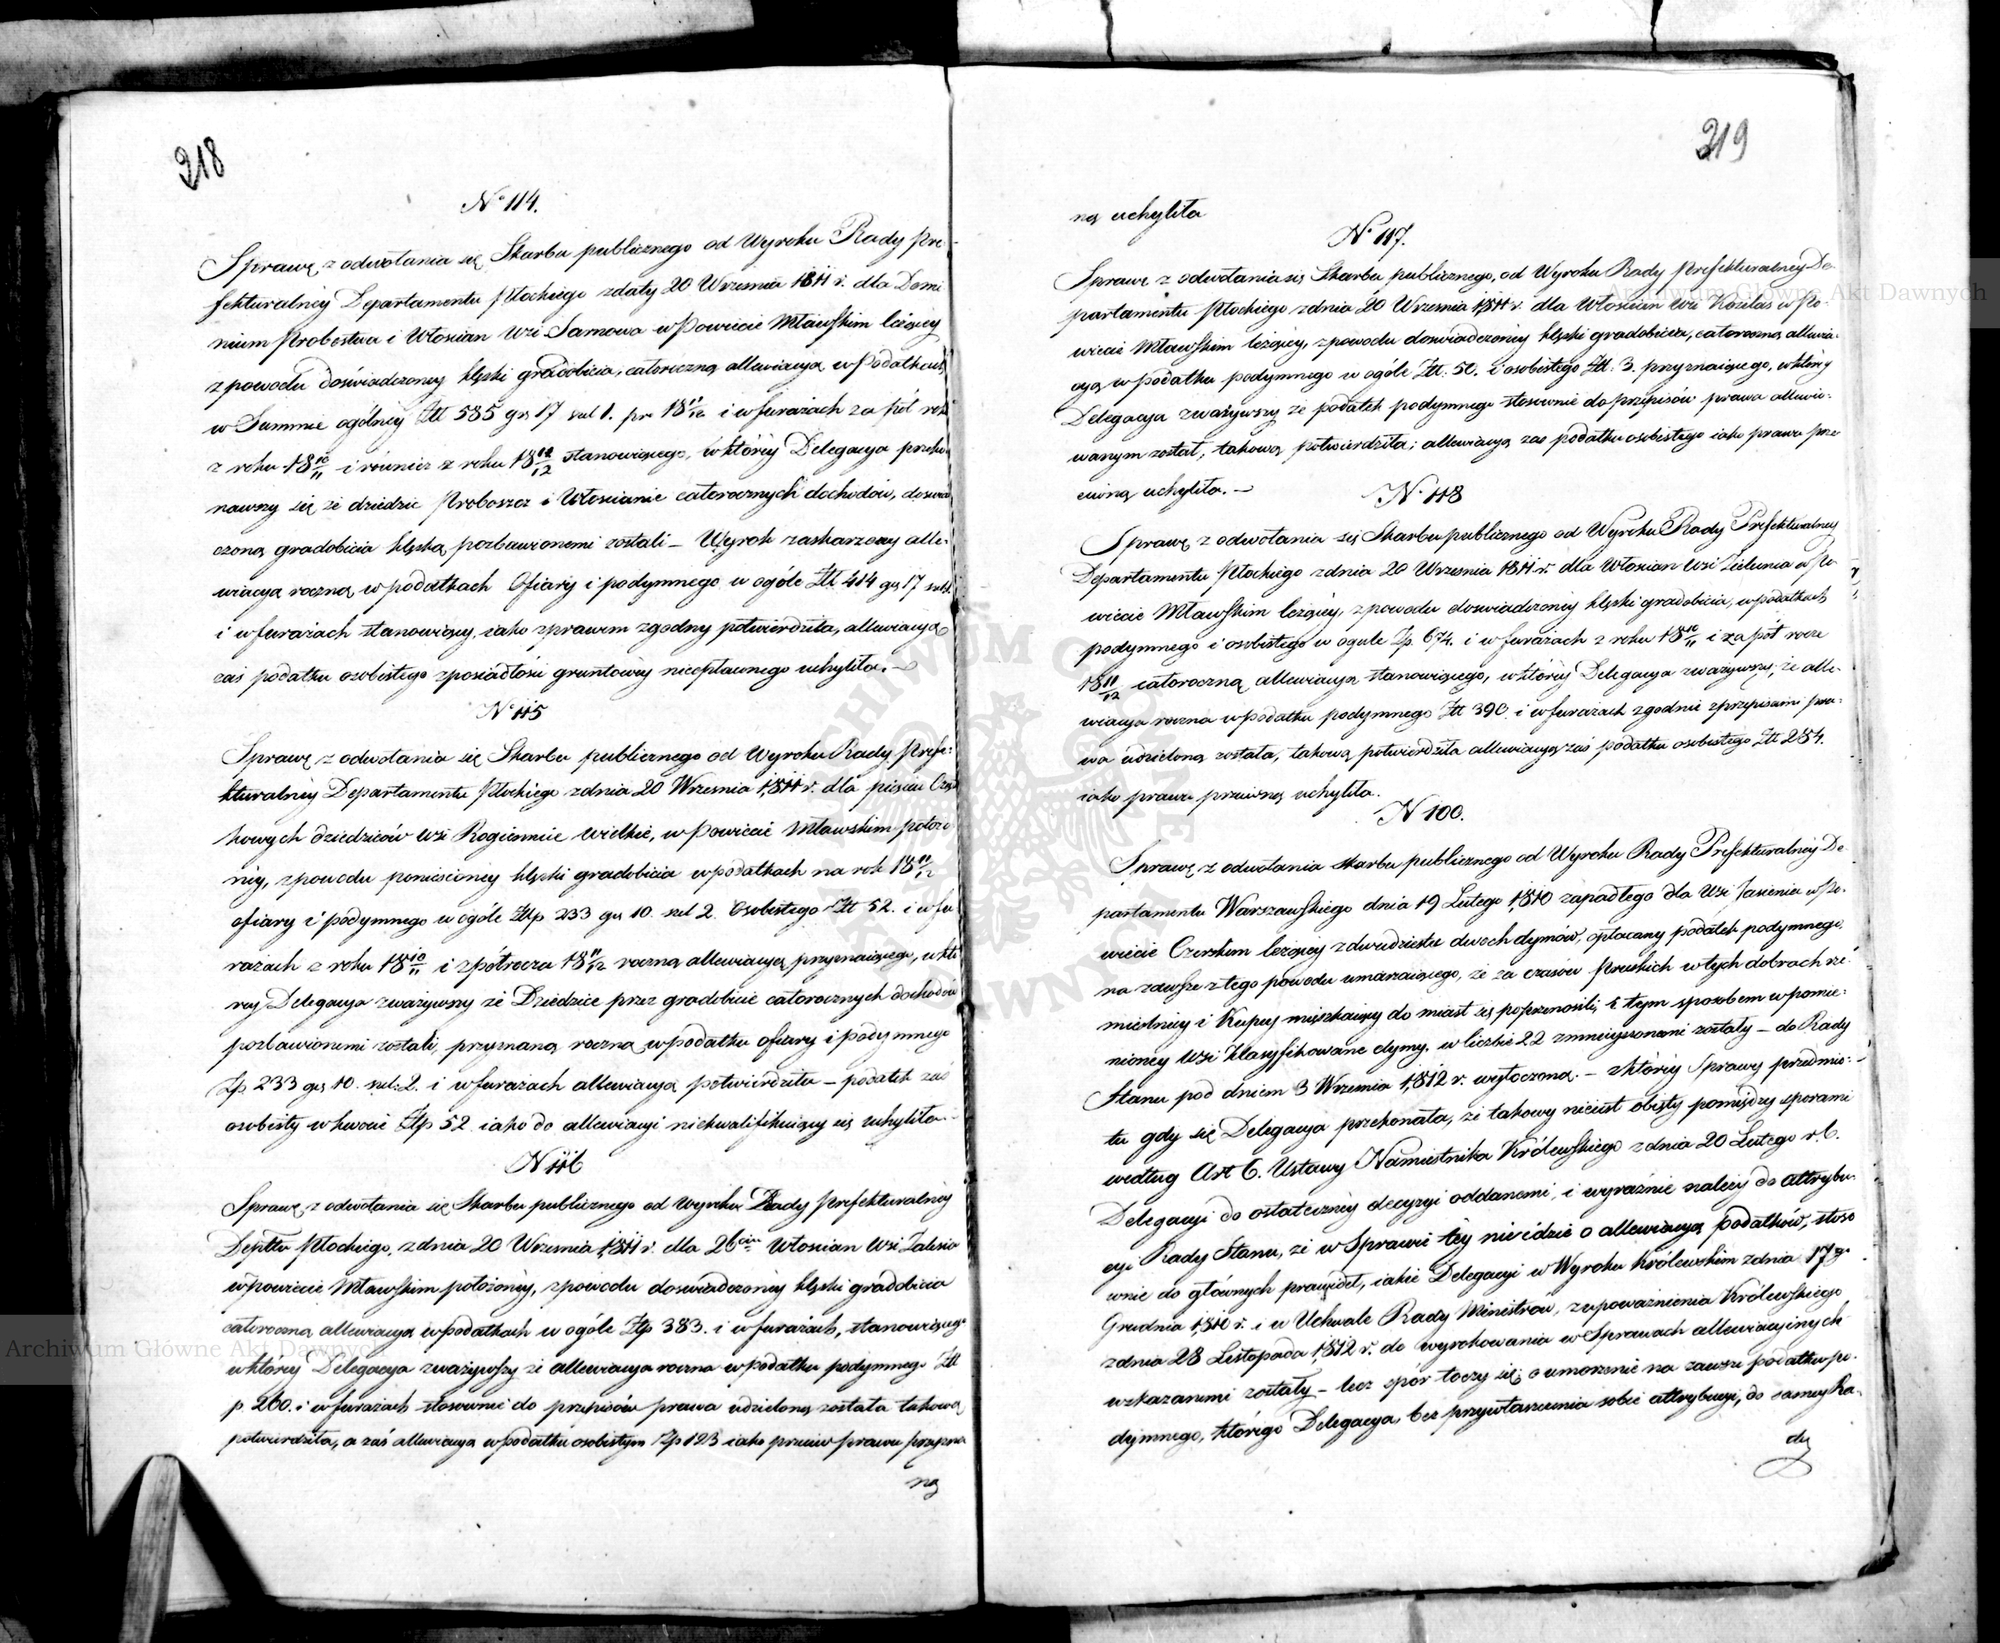 218
N° 114.
Sprawę z odwołania się Skarbu publicznego od Wyroku Rady Pre-
fekturalney Departamentu Płockiego z daty 20 Września 1811 r. dla Domi
nium Probostwa i Włościan Wsi Sarnowa w Powiecie Mławskim leżącey
z powodu doświadczoney klęski gradobicia, całoroczną allewiacyą w Podatkach
w Summie ogólney Zł 585 gr 17 szel 1. pr 18 11/12 i w furażach za pół roku
z roku 18 10/11 i również z roku 18 11/12 stanowiącego, w którey Delegacya przeko
nawszy się że dziedzic Proboszcz i Włościanie całorocznych dochodów, doswiad
czoną gradobicia klęską pozbawionemi zostali – Wyrok zaskarżony alle-
wiacyą roczną w podatkach Ofiary i podymnego w ogóle Zł 414 gr 17 szel 1.
i w furażach stanowiący, iako z prawem zgodny potwierdziła, allewiacyą
zaś podatku osobistego z posiadłości gruntowey nieopłacanego uchyliła. –
N° 115
Sprawę z odwołania się Skarbu publicznego od Wyroku Rady Prefe-
kturalney Departamentu Płockiego z dnia 20 Września 1811 r. dla pięciu Cząst
kowych dziedziców wsi Rogienice wielkie, w Powiecie Mławskim położo
ney, z powodu poniesioney klęski gradobicia w podatkach na rok 18 11/12
ofiary i podymnego w ogóle Złp 233 gr 10. szel 2. Osobistego Zł 52. i w fu
rażach z roku 18 10/11 i z półrocza 18 11/12 roczną allewiacyą przyznaiącego, w któ
rey Delegacya zważywszy że Dziedzice przez gradobicie całorocznych dochodów
pozbawionemi zostali, przyznaną roczną w podatku ofiary i podymnego
Złp 233 gr 10. szel: 2. i w furażach allewiacyą potwierdziła – podatek zaś
osobisty w kwocie Złp 52. iako do allewiacyi niekwalifikuiący się uchyliła –
N 116
Sprawę z odwołania się Skarbu publicznego od Wyroku Rady Prefekturalney
Deptttu Płockiego, z dnia 20 Września 1811 r. dla 26ciu Włościan Wsi Zalesia
w powiecie Mławskim położoney, z powodu doświadczoney klęski gradobicia
całoroczną allewiacyą w podatkach w ogóle Złp 383. i w furażach, stanowiącego
w którey Delegacya zważywszy że allewiacya roczna w podatku podymnego Zł
p. 260. i w furażach stosownie do przepisów prawa udzieloną została takową
potwierdziła, a zaś allewiacyą w podatku osobistym Złp 123 iako przeciw prawu przyzna
ną
319
ną uchyliła
N° 117.
Sprawę z odwołania się Skarbu publicznego, od Wyroku Rady Prefekturalney De-
partamentu Płockiego z dnia 20 Września 1811 r. dla Włościan Wsi w Po-
wiecie Mławskim leżącey, z powodu doświadczoney klęski gradobicia, całoroczną allewia-
cyą w podatku podymnego w ogóle Zł: 50. i osobistego Zł: 3. przyznaiącego, w którey
Delegacya zważywszy że podatek podymnego stosownie do przepisów prawa allewio-
wanym został, takową potwierdziła; allewiacyą zaś podatku osobistego iako prawu prze
ciwną uchyliła. –
N° 118
Sprawę z odwołania się Skarbu publicznego od Wyroku Rady Prefekturalney
Departamentu Płockiego z dnia 20 Września 1811 r. dla Włościan Wsi Zielunia w Po
wiecie Mławskim leżącey, z powodu doświadczoney klęski gradobicia, w podatkach
podymnego i osobistego w ogule Zp. 674. i w furażach z roku 18 10/11 i za pół rocze
18 11/12 całoroczną allewiacyą stanowiącego, w którey Delegacya zważywszy, że alle-
wiacya roczna w podatku podymnego Zł 390. i w furażach zgodnie z przepisami pra-
wa udzieloną została, takową potwierdziła allewiacyą zaś podatku osobistego Zł 284.
iako prawu przeciwną uchyliła.
N 100.
Sprawę z odwołania skarbu publicznego od Wyroku Rady Prefekturalney De
partamentu Warszawskiego dnia 19 Lutego 1810 zapadłego dla Wsi Jasienia w Po-
wiecie Czerskim leżącey z dwudziestu dwoch dymów, opłacany podatek podymnego,
na zawsze z tego powodu umarzaiącego, że za czasów Pruskich w tych dobrach rze-
mieślnicy i Kupcy mięszkaiący do miast się poprzenosili, i tym sposobem w pomie-
nioney Wsi klasyfikowane dymy. w liczbie 22 zmnieyszonemi zostały – do Rady
Stanu pod dniem 3 Września 1812 r. wytoczoną. – Którey Sprawy przedmio-
tu gdy się Delegacya przekonała, że takowy nieiest obięty pomiędzy sporami
według Art 6. Ustawy Namiestnika Królewskiego z dnia 20 Lutego r. b.
Delegacyi do ostateczney decyzyi oddanemi, i wyraźnie należy do attrybu-
cyi Rady Stanu, że w Sprawie tey nie idzie o allewiacyą podatków, stoso
wnie do głównych prawideł, iakie Delegacyi w Wyroku Królewskim z dnia 17go
Grudnia 1810 r. i w Uchwale Rady Ministrów, z upoważnienia Królewskiego
z dnia 28 Listopada 1812 r. do wyrokowania w Sprawach allewiacyinych
wskazanemi zostały – lecz spór toczy się o umorzenie na zawsze podatku po-
dymnego, którego Delegacya, bez przywłaszczenia sobie attrybucyi, do samey Ra-
dy